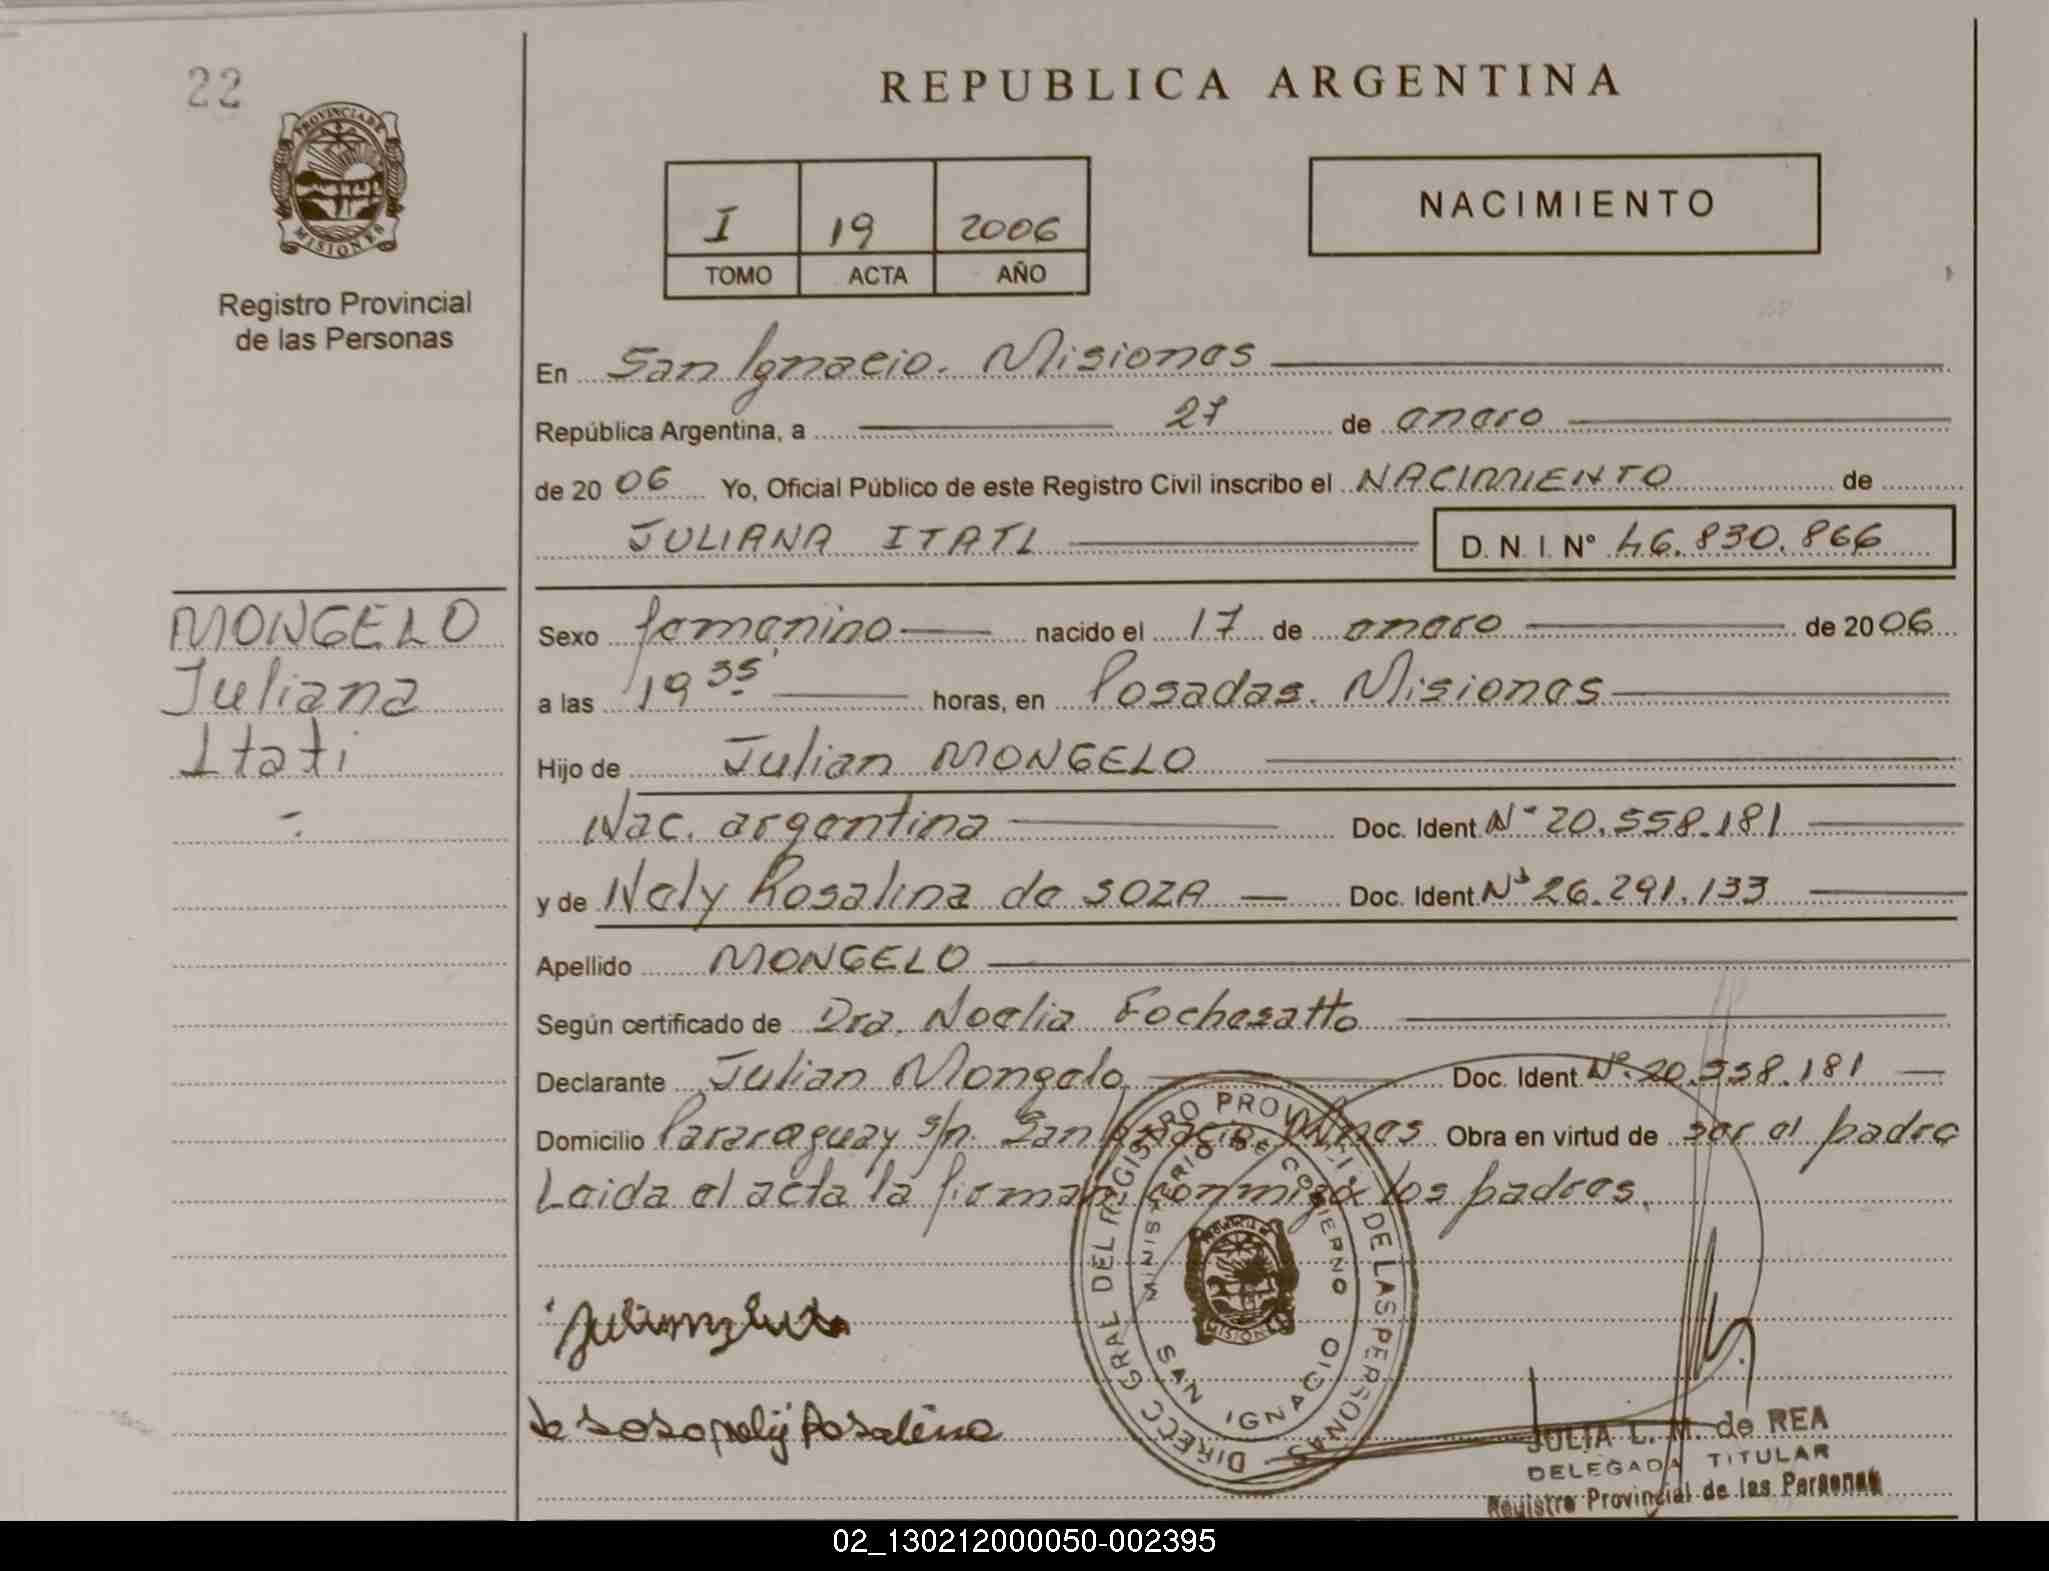 22
REPUBLICA ARGENTINA
PROVINCIA DE
MISIONES
Registro Provincial
de las Personas
I 19 2006
TOMO ACTA AÑO
NACIMIENTO
En San Ignacio. Misiones
República Argentina, a 27 de enero
de 2006 Yo, Oficial Público de este Registro Civil inscribo el NACIMIENTO de
JULIANA ITATI D. N. I. Nº 46.830.866
MONGELO
Juliana
Itati
Sexo femenino nacido el 17 de enero de 2006
a las 19 35 horas, en Posadas. Misiones
Hijo de Julian MONGELO
Nac. argentina Doc. Ident Nº 20.558.181
y de Nely Rosalina de SOZA Doc. Ident Nº 26.291.133
Apellido MONGELO
Según certificado de Dra. Noelia Fochesatto
Declarante Julian Mongelo Doc. Ident. Nº. 20.558.181
Domicilio Pararaguay s/n. San Ignacio Mnes Obra en virtud de ser el padre
Leida el acta la firman conmigo los padres.
DIRECC GRAL DEL REGISTRO PROVINCIAL DE LAS PERSONAS
MINISTERIO DE GOBIERNO
MISIONES
SAN IGNACIO
de Sosa Nely Rosalina
JULIA L. M. de REA
DELEGADA TITULAR
Registro Provincial de las Personas
02_130212000050-002395